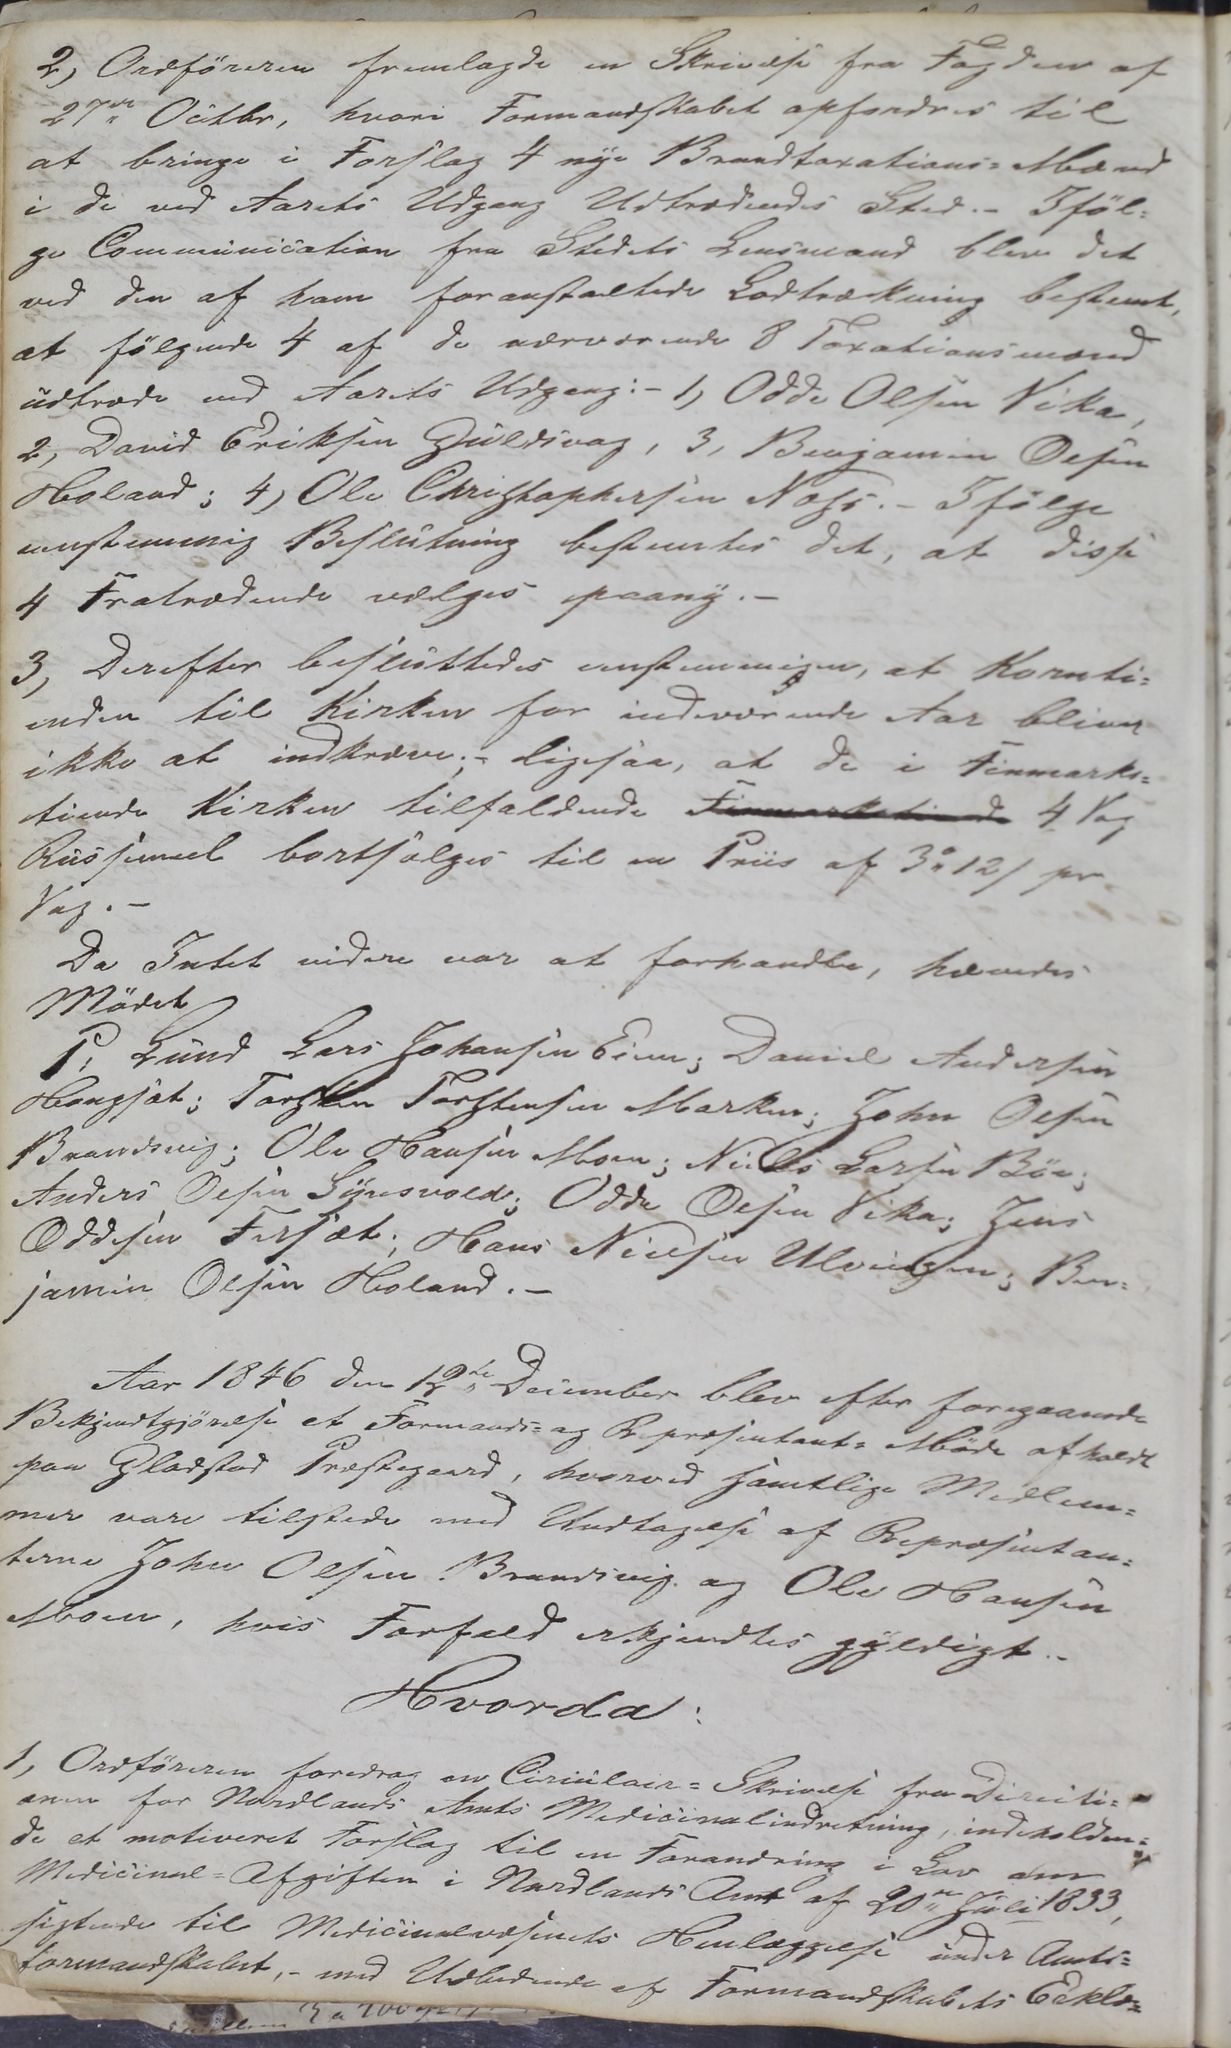 2, Ordföreren fremlagde en Skrivelse fra Fogden af
27de Octbr, hvori Formandskabet opfordres til
at bringe i Forslag 4 nye Brandtaxations=Mænd
i de ved Aarets Udgang Udtrædendes Sted.- Iföl=
ge Communication fra Stedets Lensmand blev det
ved den af ham foranstaltede Lodtrækning bestemt,
at fölgende 4 af de nærværende 8 Taxationsmænd
udtræde ved Aarets Udgang:- 1, Odde Olsen Vika,
2, David Eriksen Guldsvag, 3, Benjamin Olsen
Holand; 4, Ole Christophersen Næss.- Ifölge
eenstemmig Beslutning bestemtes det, at disse
4 Fratrædende vælges paany.-
3, Derefter besluttedes eenstemmigen, at Kornti=
enden til Kirken for indeværende Aar bliver
ikke at indkræve;- ligesaa, at de i Finmarks=
tiende Kirken tilfaldende Finmarkstiende 4 Vog
Russemeel bortsælges til en Priis af 3" 12/ pr
Vog.-
Da Intet videre var at forhandle, hævedes
Mödet
P. Lund Lars Johansen Eien; Daniel Andersen
Hongsæt; Torsten Torstensen Marken; John Olsen
Brandsvig; Ole Hansen Moen; Niels Larsen Böe;
Anders Olsen Synesvold; Odde Olsen Vika; Jens
Oddesen Forsæt; Hans Nielsen Ulvingen; Ben=
jamin Olsen Holand.-
Aar 1846 den 12te December blev efter foregaaende
Bekjendtgjörelse et Formands= og Repræsentant=Möde afholdt
paa Gladstad Præstegaard, hvorved samtlige Medlem=
mer vare tilstede med Undtagelse af Repræsentan=
terne John Olsen Brandsvig og Ole Hansen
Moen, hvis Forfald erkjendtes gyldigt.-
Hvorda:
1, Ordföreren foredrog en Circulair=Skrivelse fra Directi=
onen for Nordlands Amts Medicinalindretning, indeholden=
de et motiveret Forslag til en Forandring i Lov om
Medicinal=Afgiften i Nordlands Amt af 20de Juli 1833,
sigtende til Medicinalvæsenets Henlæggelse under Amts=
formandskabet,- med Udbedende af Formandskabets Erklæ=